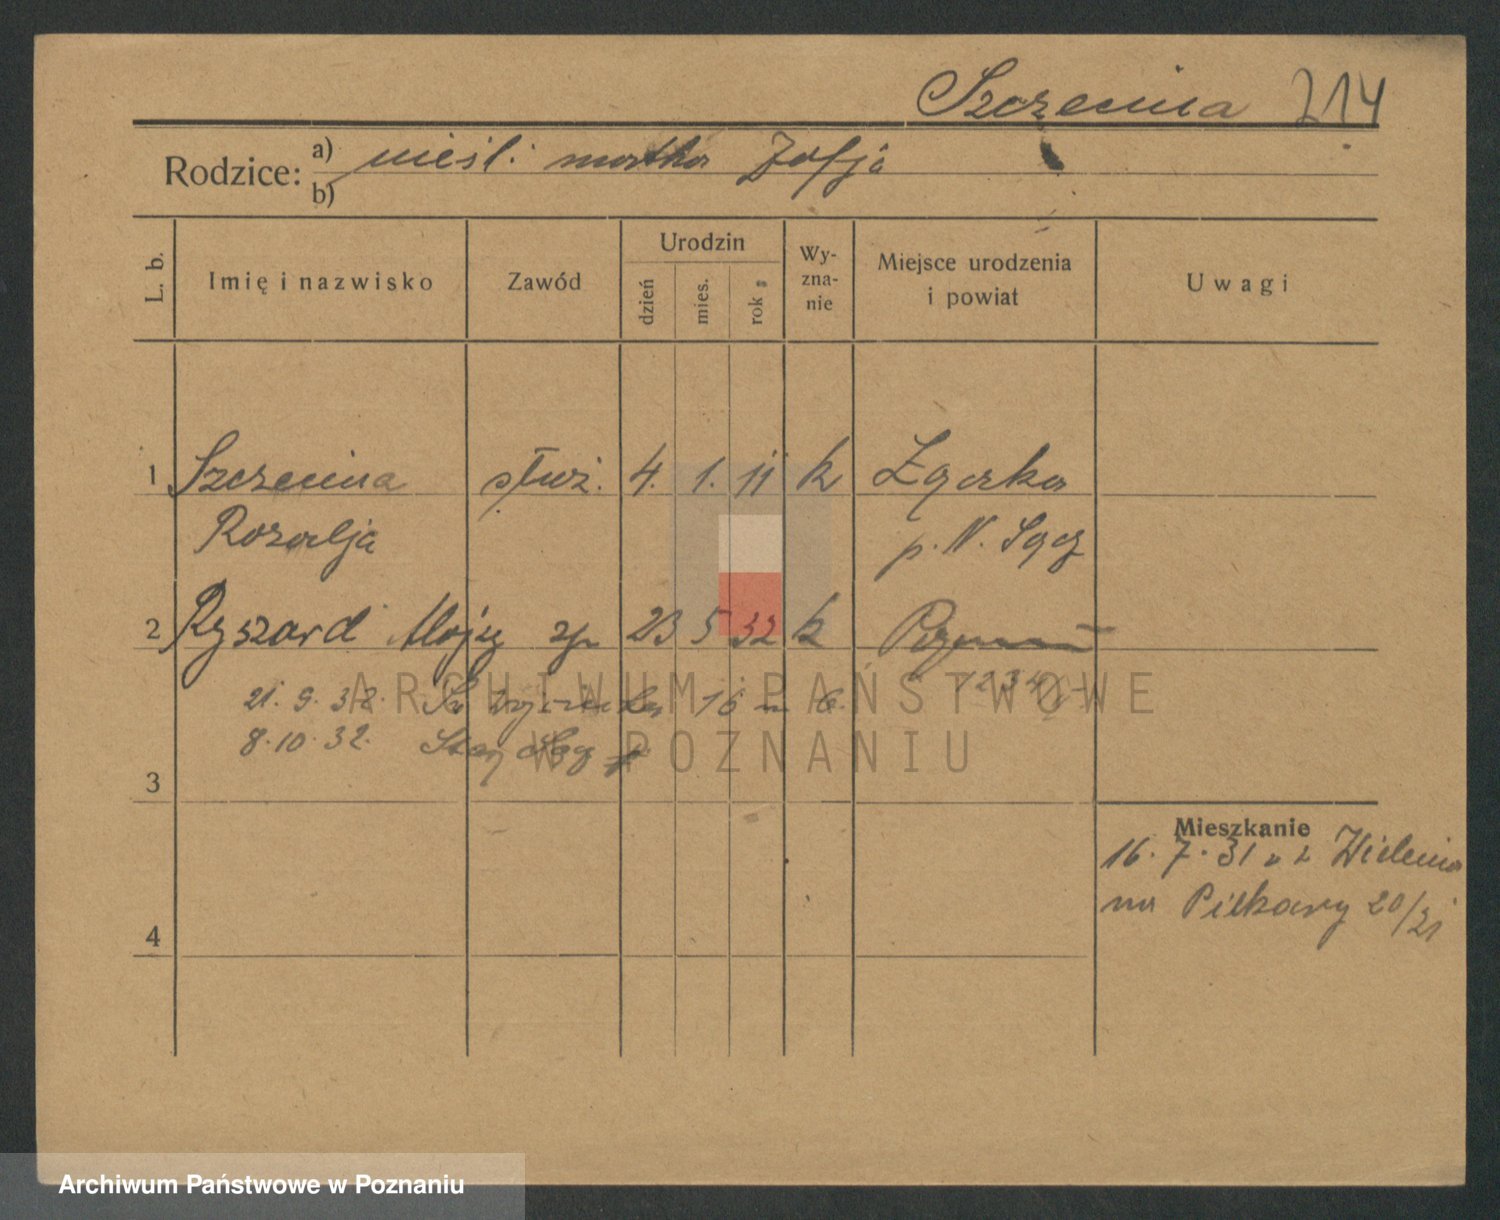 Szczecina 214
Rodzice: a) nieśl. matka Zofja
b)
L. b. Imię i nazwisko Zawód Urodzin dzień mies. rok Wy-zna-nie Miejsce urodzenia i powiat Uwagi
1 Szczecina służ. 4. 1. 11 k Żgorka
Rozalja p. N. Sącz
2 Ryszard Alojzy 23 5 32 k Poznań
21. 9. 32. 16 m 6.
8. 10. 32.
ARCHIWUM PAŃSTWOWE
W POZNANIU
3
Mieszkanie
16. 7. 31 z Wielenia
na Piekary 20/21
4
Archiwum Państwowe w Poznaniu